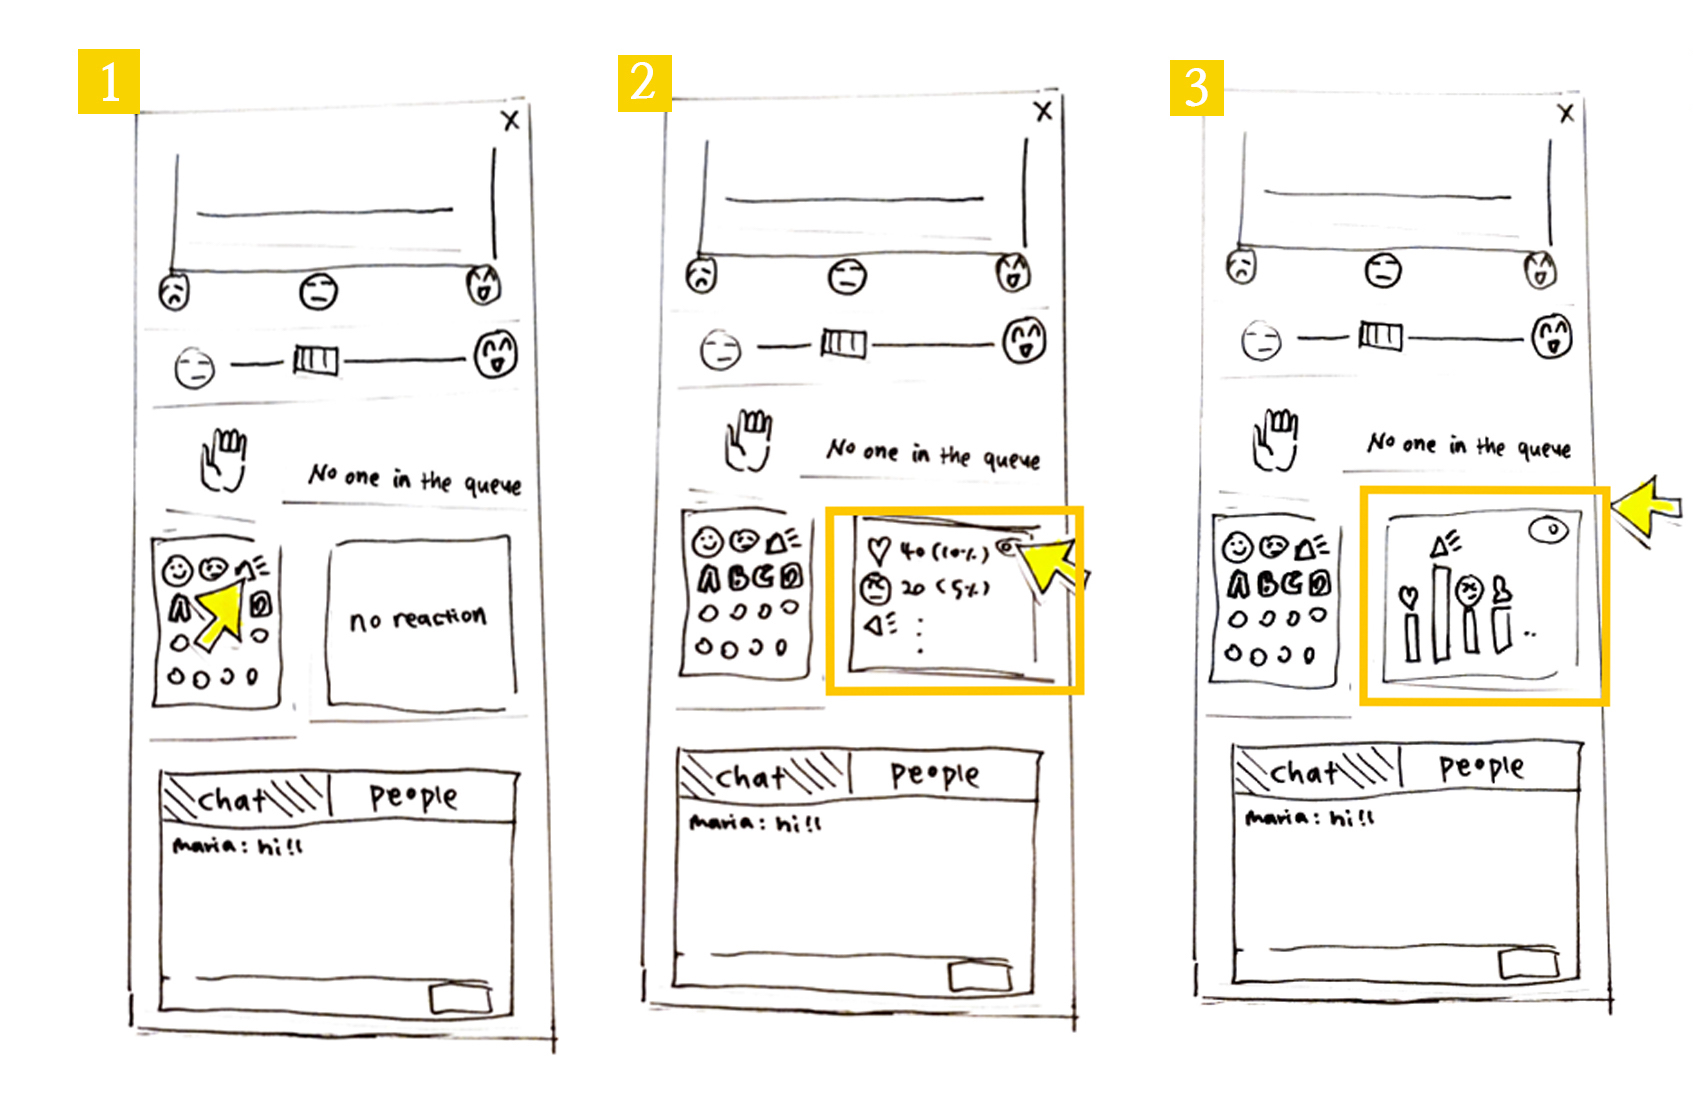 1
X
No one in the queue
A D
no reaction
chat people
maria: hi!!
2
X
No one in the queue
A B C D
40 (10%)
20 (5%)
chat people
maria: hi!!
3
X
No one in the queue
A B C D
chat people
maria: hi!!